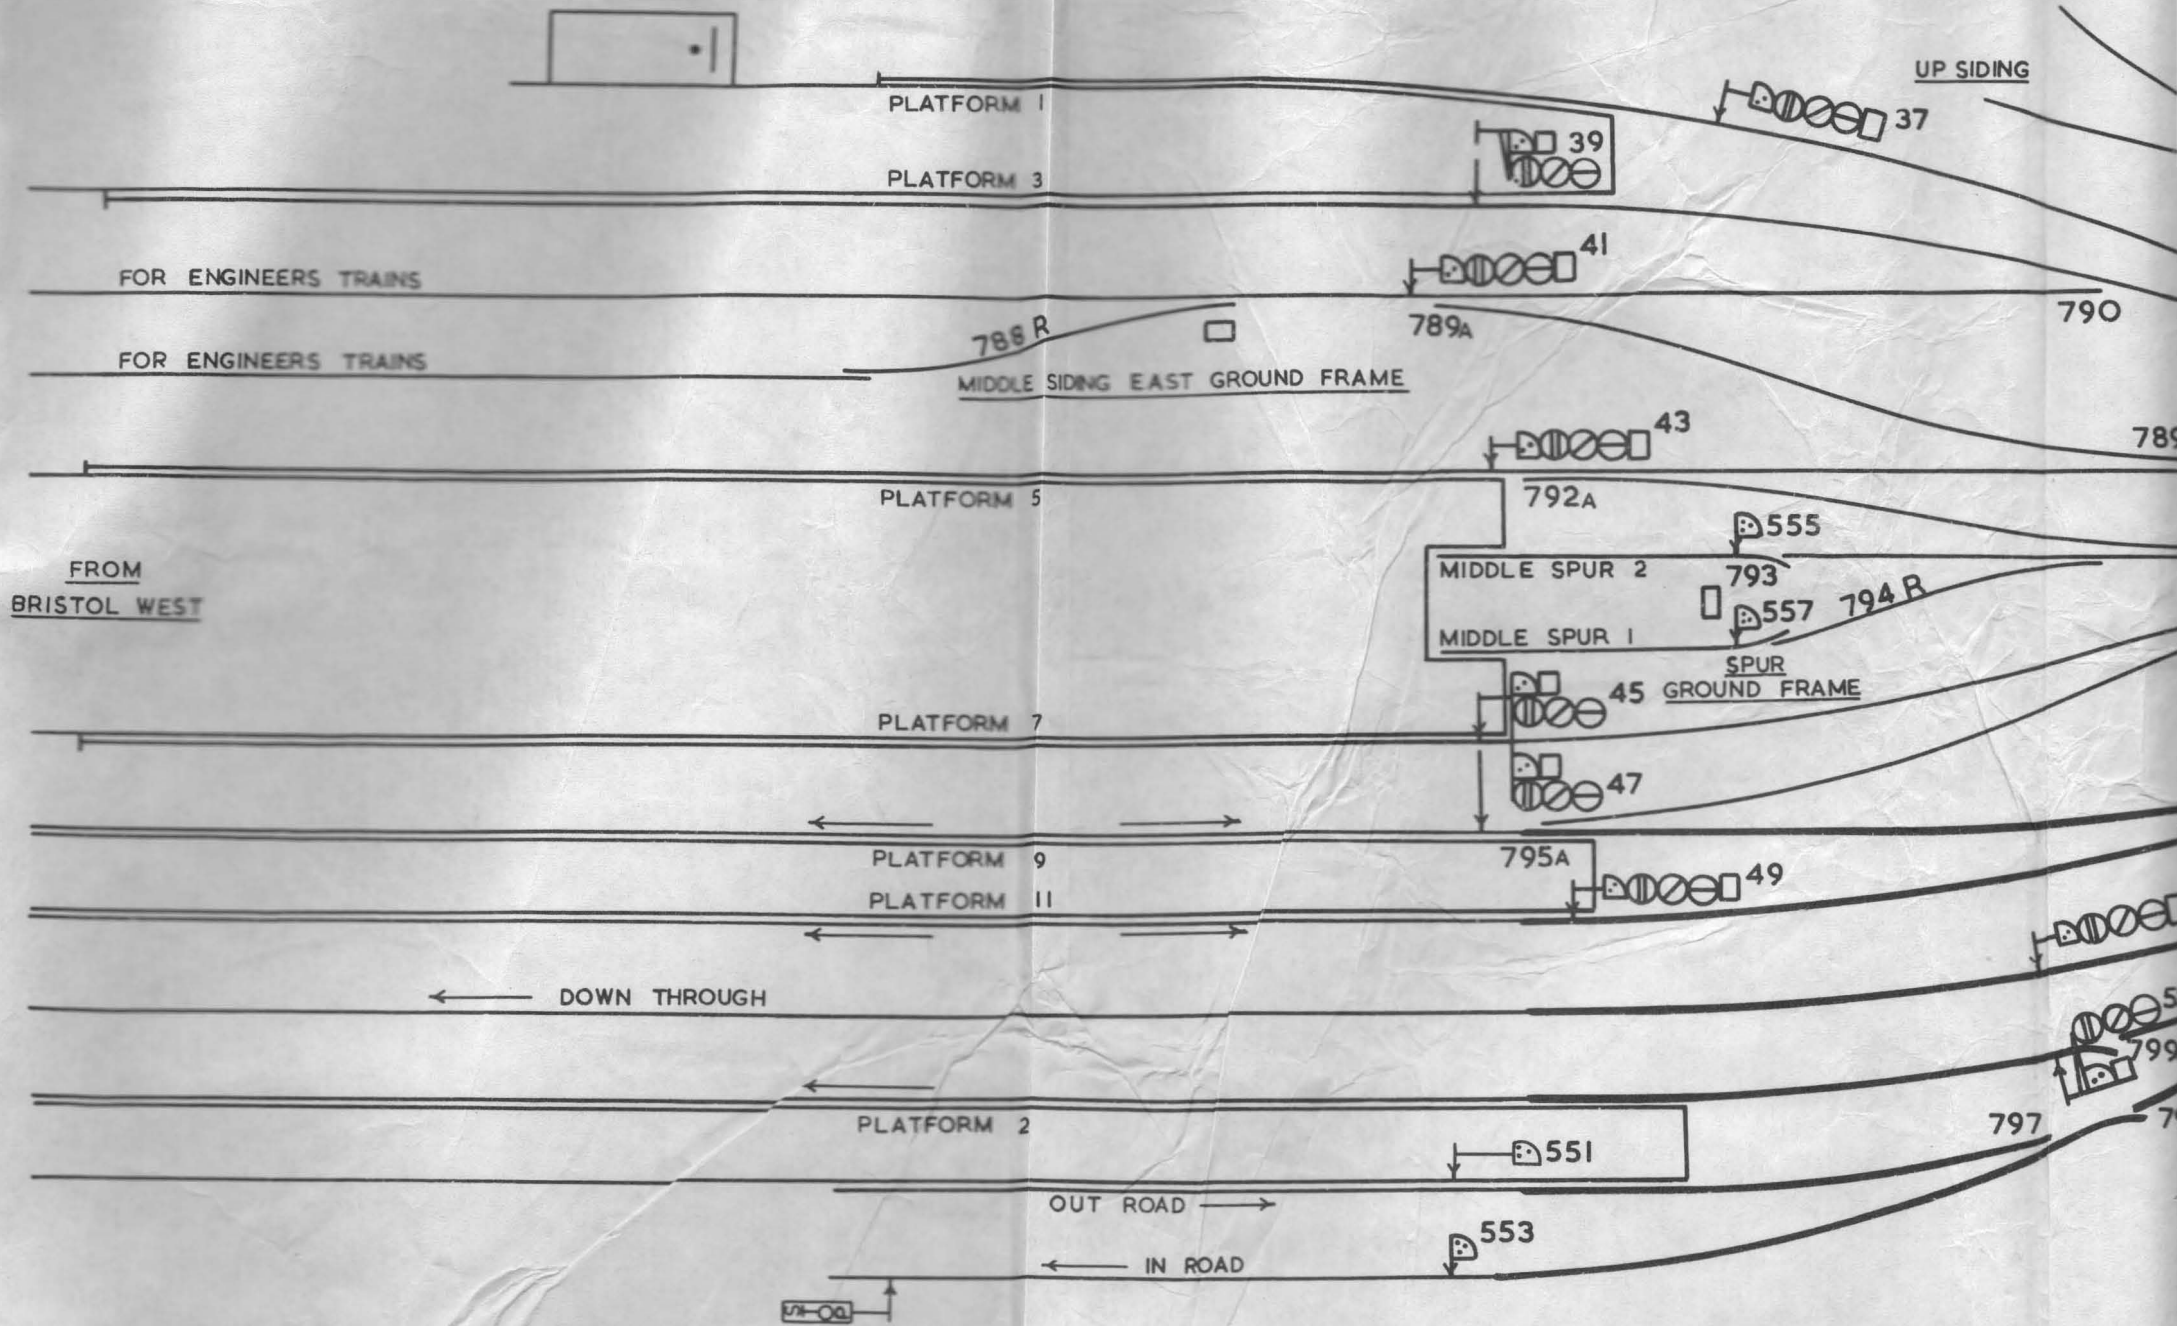 UP SIDING
PLATFORM 1
37
39
PLATFORM 3
41
FOR ENGINEERS TRAINS
790
789A
788 R
FOR ENGINEERS TRAINS
MIDDLE SIDING EAST GROUND FRAME
43
789
PLATFORM 5
792A
555
FROM
BRISTOL WEST
MIDDLE SPUR 2
793
794 R
557
MIDDLE SPUR 1
SPUR
GROUND FRAME
45
PLATFORM 7
47
PLATFORM 9
795A
PLATFORM 11
49
DOWN THROUGH
799
PLATFORM 2
797
551
OUT ROAD
553
IN ROAD
STOP